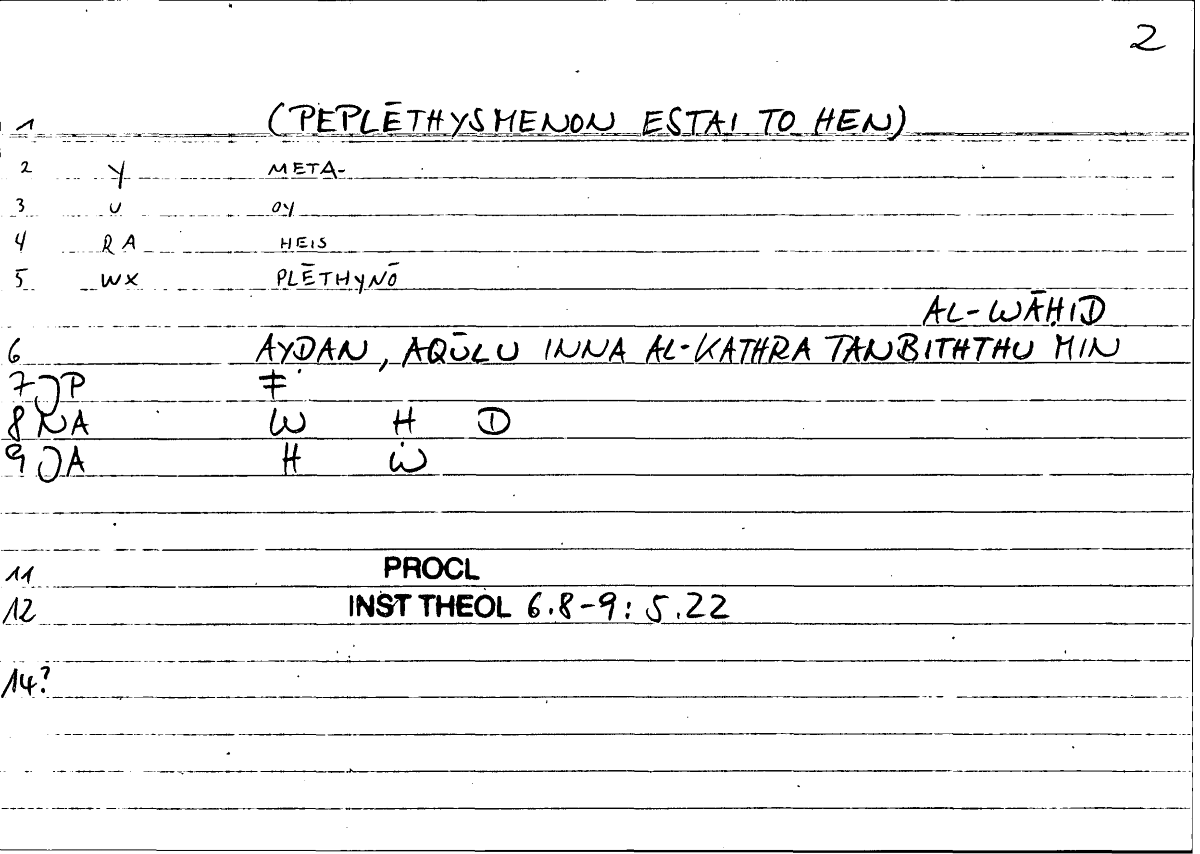 2
1 (PEPLĒTHYSMENON ESTAI TO HEN)
2 Y META-
3 U OY
4 RA HEIS
5 WX PLĒTHYNŌ
AL-WĀḤID
6 AYḌAN, AQŪLU INNA AL-KATHRA TANBITHTHU MIN
7 JP ‡
8 NA W H D
9 JA H W
11 PROCL
12 INST THEOL 6.8-9: 5.22
14?